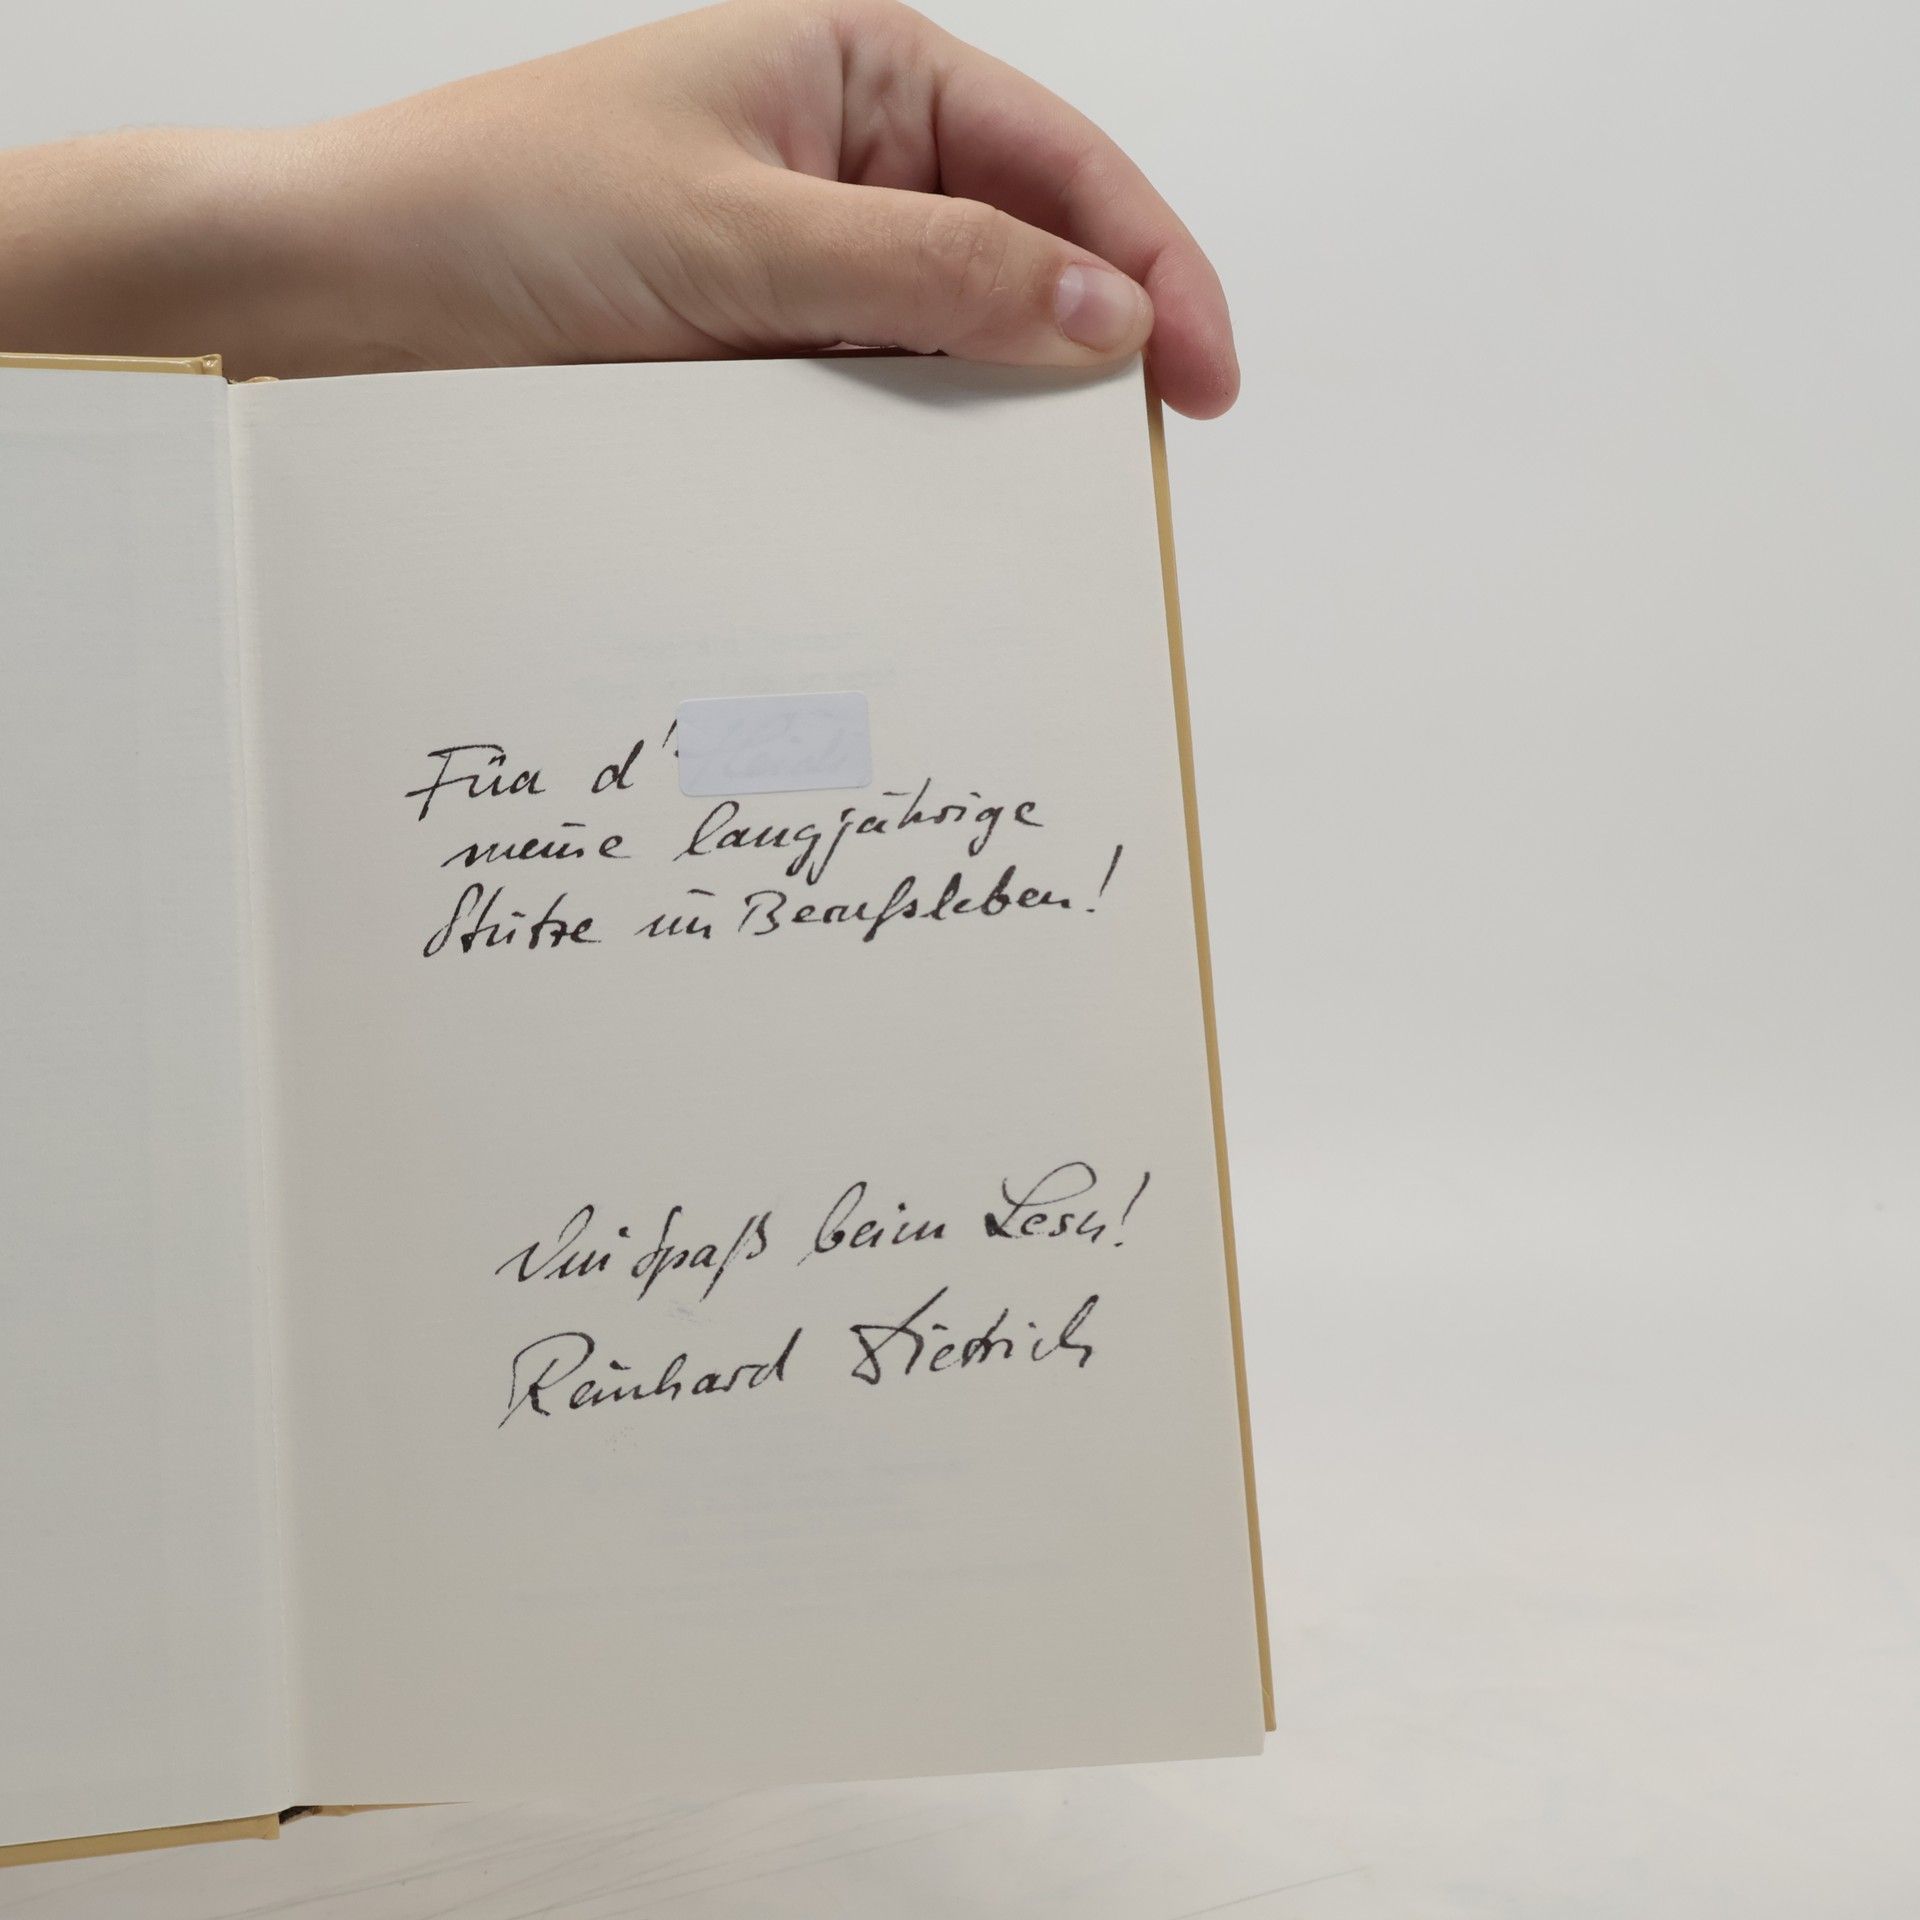 Füa d'
meine langjährige
Stütze im Berufsleben!
Vui Spaß beim Lesn!
Reinhard Dietrich